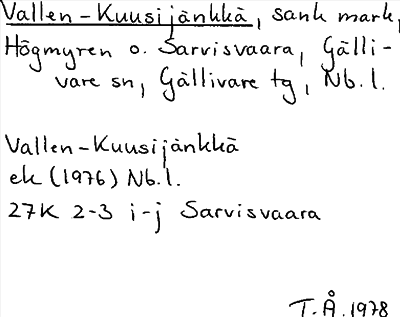 Vallen-Kuusijänkkä, sank mark,
Högmyren o. Sarvisvaara, Gälli-
vare sn, Gällivare tg, Nb.l.
Vallen-Kuusijänkkä
ek (1976) Nb.l.
27K 2-3 i-j Sarvisvaara
T.Å.1978